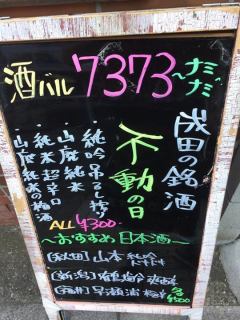 酒バル 7373
〜ナミダ〜
成田の銘酒
不動の日
・純吟吊るし搾り
・山廃純米
・純米超辛口
・山廃純米の梅酒
ALL ¥300
〜おすすめ日本酒〜
[秋田] 山本 純吟
[新潟] 鶴齢
[福井] 早瀬浦 純米
各¥500